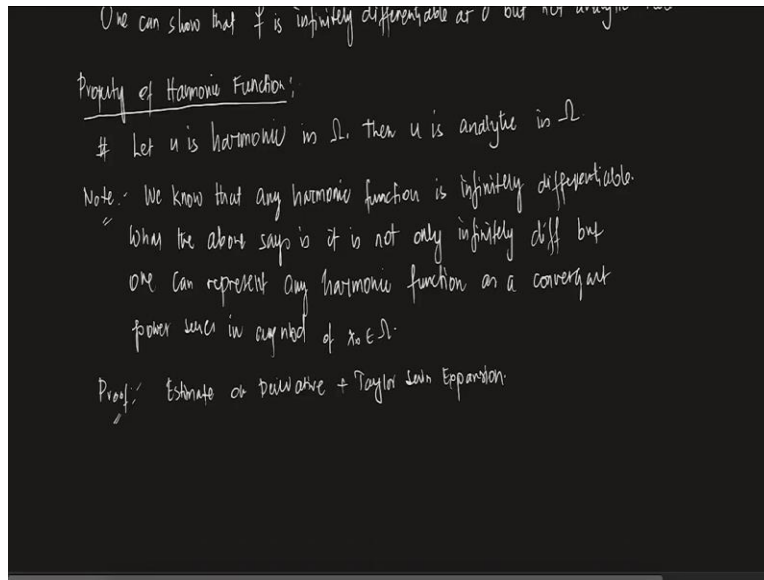 One can show that f is infinitely differentiable at 0 but not analytic
Property of Harmonic Function:
# Let u is harmonic in Ω. Then u is analytic in Ω.
Note:- We know that any harmonic function is infinitely differentiable.
What the above says is it is not only infinitely diff but
one can represent any harmonic function as a convergent
power series in any nbd of x₀ ∈ Ω.
Proof:- Estimate on Derivative + Taylor Series Expansion.